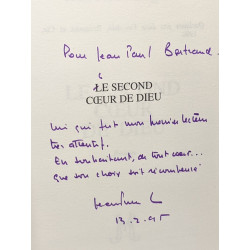 Pour Jean Paul Bertrand
LE SECOND
CŒUR DE DIEU
lui qui fut mon premier lecteur
très attentif.
En souhaitant, de tout cœur...
que son choix soit récompensé
13.2.95